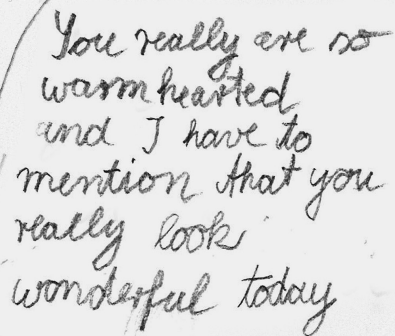 You really are so
warmhearted
and I have to
mention that you
really look
wonderful today